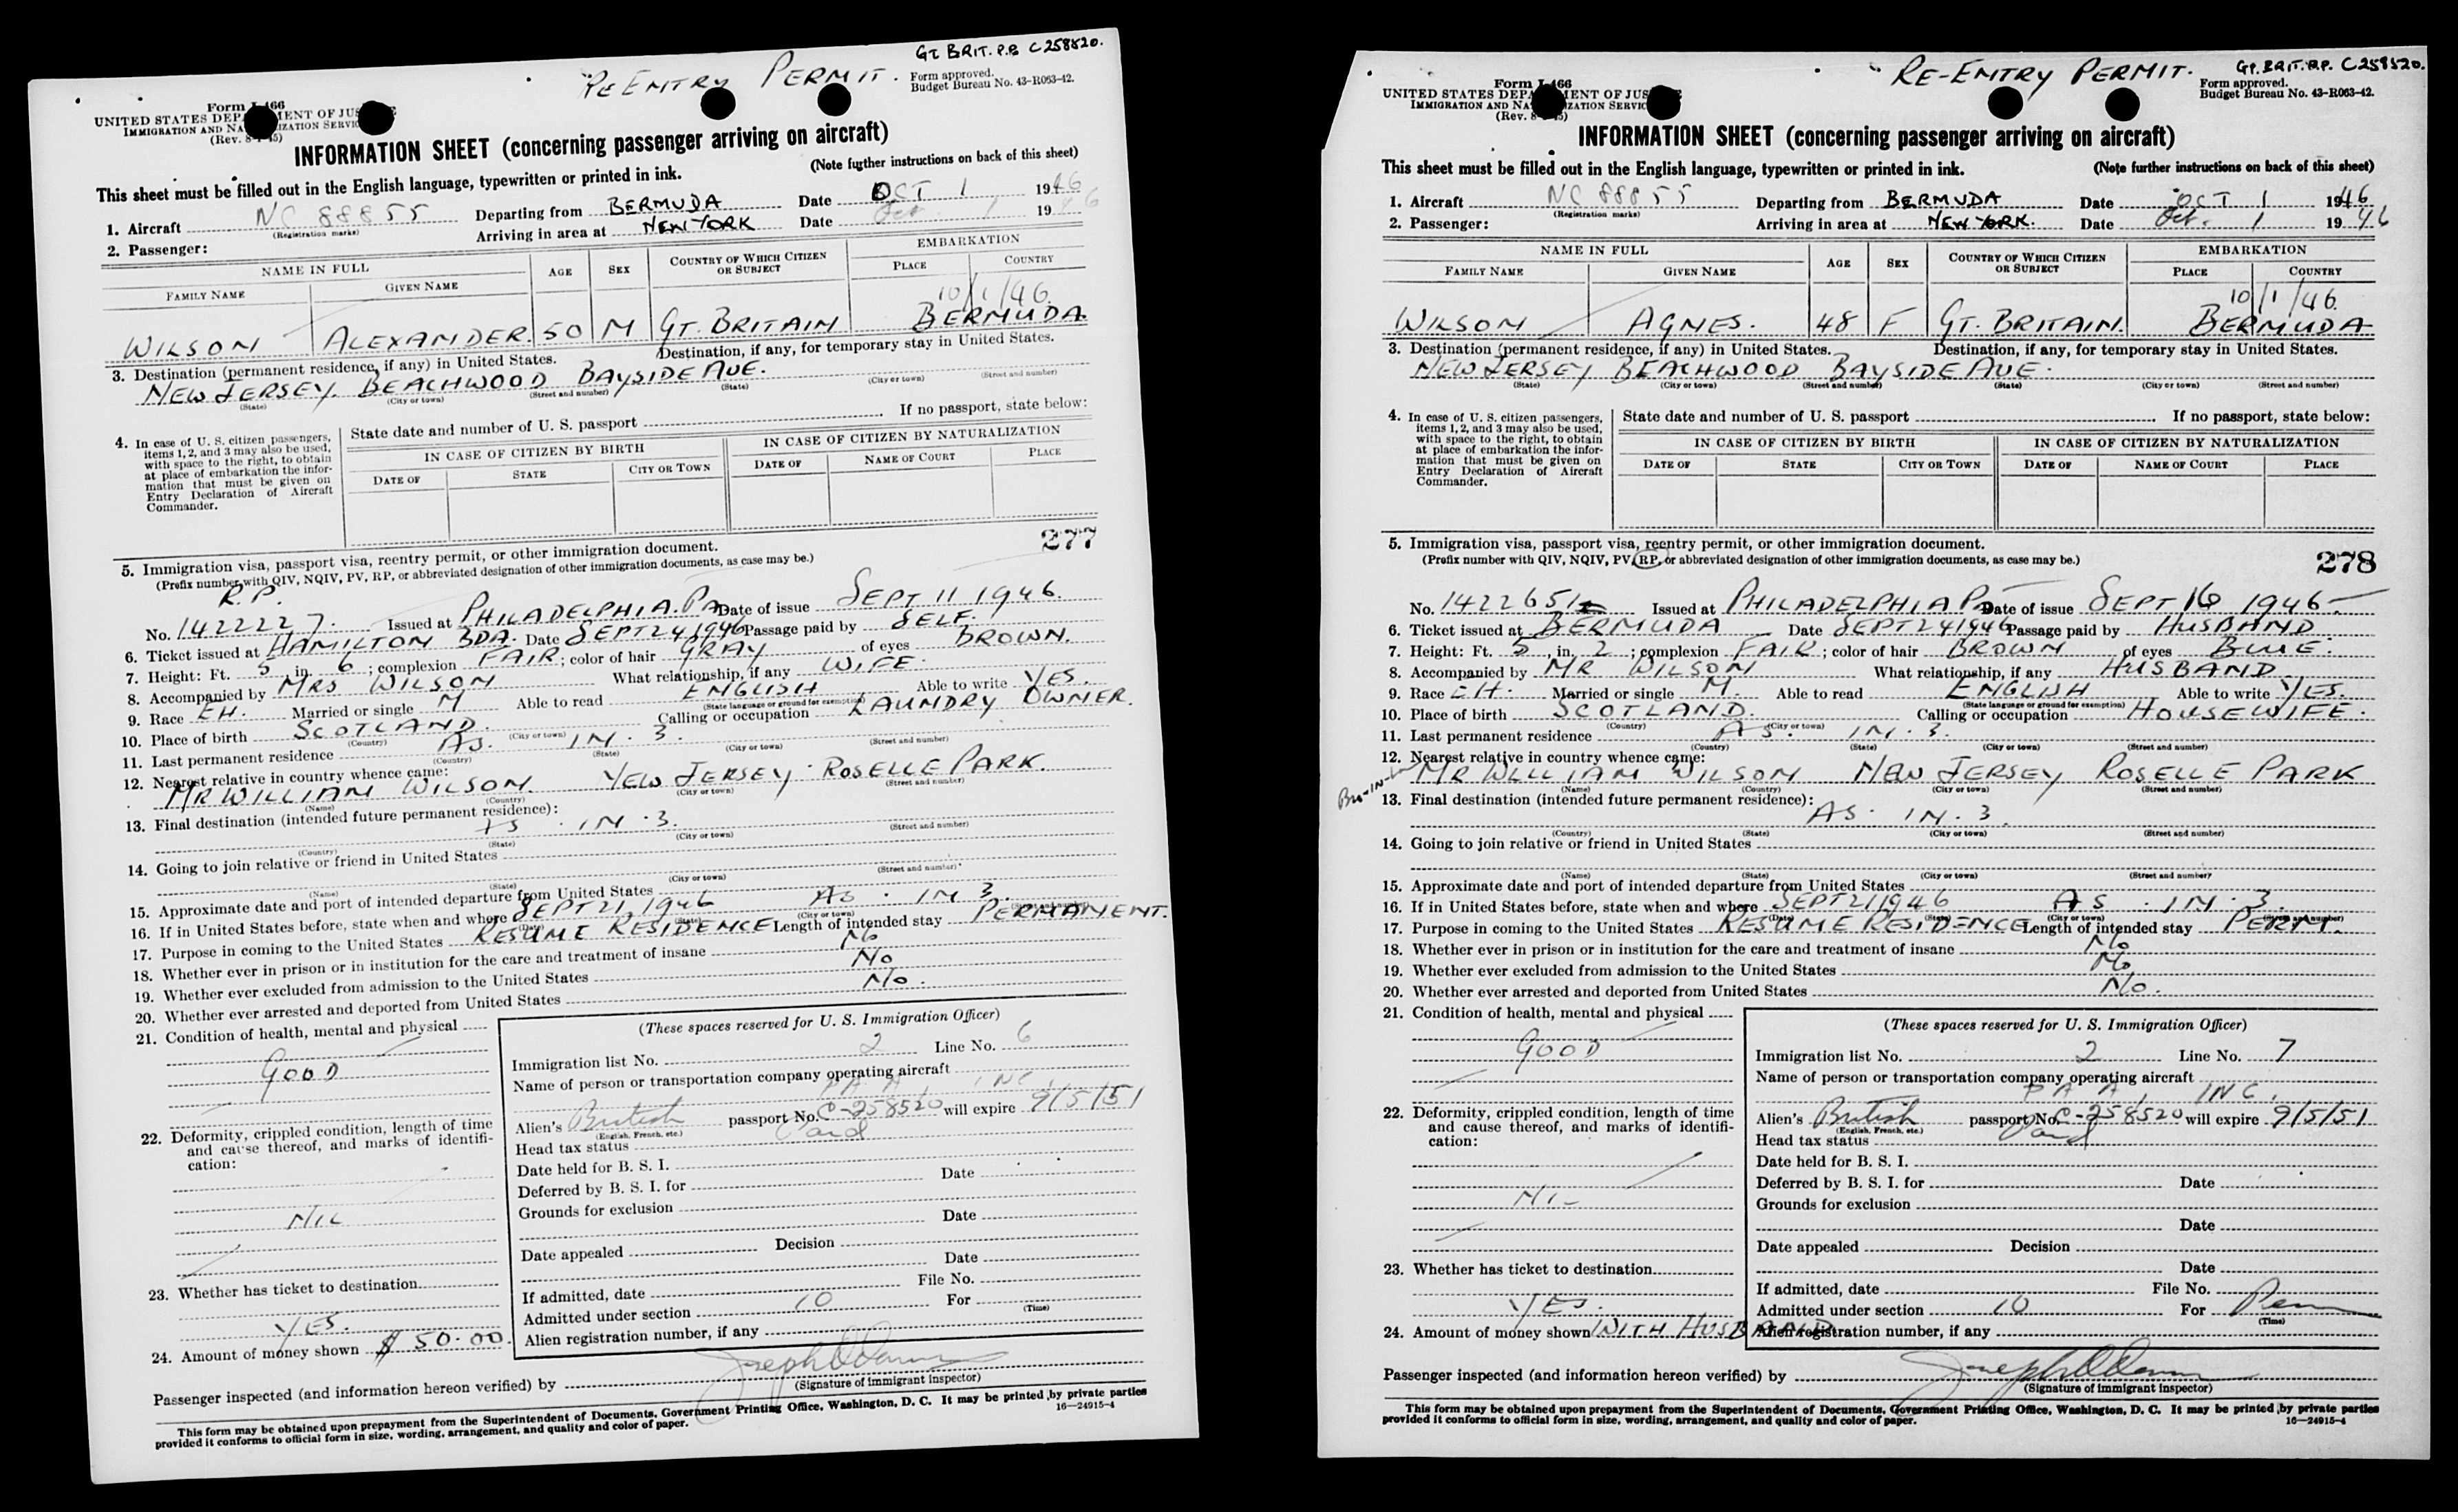 GT BRIT. P.P. C258520.
RE ENTRY PERMIT.
Form approved.
Budget Bureau No. 43-R063-42.
Form I-466
UNITED STATES DEPARTMENT OF JUSTICE
IMMIGRATION AND NATURALIZATION SERVICE
(Rev. 8-1-45)
INFORMATION SHEET (concerning passenger arriving on aircraft)
This sheet must be filled out in the English language, typewritten or printed in ink. (Note further instructions on back of this sheet)
1. Aircraft NC 88855 Departing from BERMUDA Date OCT 1 1946
(Registration marks)
2. Passenger: Arriving in area at NEW YORK Date Oct. 1 1946
NAME IN FULL AGE SEX COUNTRY OF WHICH CITIZEN OR SUBJECT EMBARKATION
FAMILY NAME GIVEN NAME PLACE COUNTRY
10/1/46.
WILSON ALEXANDER. 50 M GT. BRITAIN BERMUDA
3. Destination (permanent residence, if any) in United States. Destination, if any, for temporary stay in United States.
NEW JERSEY. BEACHWOOD BAYSIDE AVE.
(State) (City or town) (Street and number) (State) (City or town) (Street and number)
4. In case of U. S. citizen passengers, items 1, 2, and 3 may also be used, with space to the right, to obtain at place of embarkation the information that must be given on Entry Declaration of Aircraft Commander.
State date and number of U. S. passport If no passport, state below:
IN CASE OF CITIZEN BY BIRTH IN CASE OF CITIZEN BY NATURALIZATION
DATE OF STATE CITY OR TOWN DATE OF NAME OF COURT PLACE
277
5. Immigration visa, passport visa, reentry permit, or other immigration document.
(Prefix number with QIV, NQIV, PV, RP, or abbreviated designation of other immigration documents, as case may be.)
R.P.
No. 1422227. Issued at PHILADELPHIA. PA Date of issue SEPT 11 1946.
6. Ticket issued at HAMILTON BDA. Date SEPT 24 1946 Passage paid by SELF.
7. Height: Ft. 5 in. 6; complexion FAIR; color of hair GRAY of eyes BROWN.
8. Accompanied by MRS WILSON What relationship, if any WIFE.
9. Race EH. Married or single M Able to read ENGLISH Able to write YES.
(State language or ground for exemption)
10. Place of birth SCOTLAND. Calling or occupation LAUNDRY OWNER.
(Country) (City or town)
11. Last permanent residence AS. IN. 3.
(Country) (State) (City or town) (Street and number)
12. Nearest relative in country whence came:
MR WILLIAM WILSON. NEW JERSEY. ROSELLE PARK.
(Name) (Country) (City or town) (Street and number)
13. Final destination (intended future permanent residence):
AS . IN . 3.
(Country) (State) (City or town) (Street and number)
14. Going to join relative or friend in United States
(Name) (State) (City or town) (Street and number)
15. Approximate date and port of intended departure from United States
16. If in United States before, state when and where SEPT 21, 1946 AS . IN 3.
(Date) (State) (City or town) (Street and number)
17. Purpose in coming to the United States RESUME RESIDENCE Length of intended stay PERMANENT.
18. Whether ever in prison or in institution for the care and treatment of insane No
19. Whether ever excluded from admission to the United States No
20. Whether ever arrested and deported from United States No.
21. Condition of health, mental and physical
GOOD
22. Deformity, crippled condition, length of time and cause thereof, and marks of identification:
NIL
23. Whether has ticket to destination
YES.
24. Amount of money shown $ 50.00.
(These spaces reserved for U. S. Immigration Officer)
Immigration list No. 2 Line No. 6
Name of person or transportation company operating aircraft
P A A, INC.
Alien's British passport No. C-258520 will expire 9/5/51
(English, French, etc.)
Head tax status Paid
Date held for B. S. I.
Deferred by B. S. I. for Date
Grounds for exclusion
Date
Date appealed Decision
Date
If admitted, date File No.
Admitted under section 10 For
(Time)
Alien registration number, if any
Passenger inspected (and information hereon verified) by
(Signature of immigrant inspector)
This form may be obtained upon prepayment from the Superintendent of Documents, Government Printing Office, Washington, D. C. It may be printed by private parties
provided it conforms to official form in size, wording, arrangement, and quality and color of paper. 16—24915-4
RE-ENTRY PERMIT.
GT. BRIT. P.P. C258520.
Form approved.
Budget Bureau No. 43-R063-42.
Form I-466
UNITED STATES DEPARTMENT OF JUSTICE
IMMIGRATION AND NATURALIZATION SERVICE
(Rev. 8-1-45)
INFORMATION SHEET (concerning passenger arriving on aircraft)
This sheet must be filled out in the English language, typewritten or printed in ink. (Note further instructions on back of this sheet)
1. Aircraft NC 88855 Departing from BERMUDA Date OCT 1 1946
(Registration marks)
2. Passenger: Arriving in area at NEW YORK. Date Oct. 1 1946
NAME IN FULL AGE SEX COUNTRY OF WHICH CITIZEN OR SUBJECT EMBARKATION
FAMILY NAME GIVEN NAME PLACE COUNTRY
10/1/46.
WILSON AGNES. 48 F GT. BRITAIN. BERMUDA
3. Destination (permanent residence, if any) in United States. Destination, if any, for temporary stay in United States.
NEW JERSEY BEACHWOOD BAYSIDE AVE.
(State) (City or town) (Street and number) (State) (City or town) (Street and number)
4. In case of U. S. citizen passengers, items 1, 2, and 3 may also be used, with space to the right, to obtain at place of embarkation the information that must be given on Entry Declaration of Aircraft Commander.
State date and number of U. S. passport If no passport, state below:
IN CASE OF CITIZEN BY BIRTH IN CASE OF CITIZEN BY NATURALIZATION
DATE OF STATE CITY OR TOWN DATE OF NAME OF COURT PLACE
5. Immigration visa, passport visa, reentry permit, or other immigration document.
(Prefix number with QIV, NQIV, PV, RP, or abbreviated designation of other immigration documents, as case may be.)
278
No. 1422651 Issued at PHILADELPHIA PA Date of issue SEPT 16 1946
6. Ticket issued at BERMUDA Date SEPT 24 1946 Passage paid by HUSBAND.
7. Height: Ft. 5, in. 2; complexion FAIR; color of hair BROWN of eyes BLUE.
8. Accompanied by MR WILSON What relationship, if any HUSBAND
9. Race EH. Married or single M. Able to read ENGLISH Able to write YES.
(State language or ground for exemption)
10. Place of birth SCOTLAND. Calling or occupation HOUSEWIFE.
(Country) (City or town)
11. Last permanent residence AS. IN. 3.
(Country) (State) (City or town) (Street and number)
12. Nearest relative in country whence came:
Bro-IN-Law MR WILLIAM WILSON NEW JERSEY ROSELLE PARK
(Name) (Country) (City or town) (Street and number)
13. Final destination (intended future permanent residence):
AS. IN. 3.
(Country) (State) (City or town) (Street and number)
14. Going to join relative or friend in United States
(Name) (State) (City or town) (Street and number)
15. Approximate date and port of intended departure from United States
16. If in United States before, state when and where SEPT 21 1946 AS . IN . 3.
(Date) (State) (City or town) (Street and number)
17. Purpose in coming to the United States RESUME RESIDENCE Length of intended stay PERM.
18. Whether ever in prison or in institution for the care and treatment of insane No
19. Whether ever excluded from admission to the United States No
20. Whether ever arrested and deported from United States No.
21. Condition of health, mental and physical
GOOD
22. Deformity, crippled condition, length of time and cause thereof, and marks of identification:
NIL
23. Whether has ticket to destination
YES.
24. Amount of money shown WITH HUSBAND
(These spaces reserved for U. S. Immigration Officer)
Immigration list No. 2 Line No. 7
Name of person or transportation company operating aircraft
P A A, INC.
Alien's British passport No. C-258520 will expire 9/5/51
(English, French, etc.)
Head tax status Paid
Date held for B. S. I.
Deferred by B. S. I. for Date
Grounds for exclusion
Date
Date appealed Decision
Date
If admitted, date File No.
Admitted under section 10 For Perm
(Time)
Alien registration number, if any
Passenger inspected (and information hereon verified) by
(Signature of immigrant inspector)
This form may be obtained upon prepayment from the Superintendent of Documents, Government Printing Office, Washington, D. C. It may be printed by private parties
provided it conforms to official form in size, wording, arrangement, and quality and color of paper. 16—24915-4